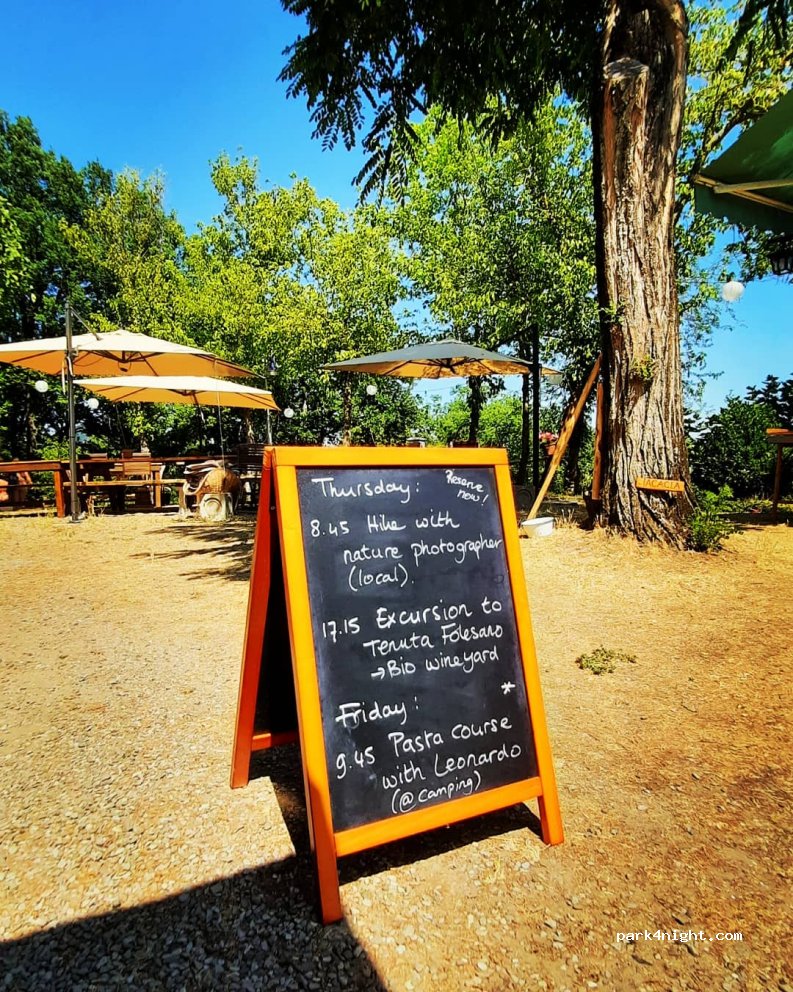 Thursday:
Reserve
now!
8.45 Hike with
nature photographer
(local).
17.15 Excursion to
Tenuta Folesano
→Bio wineyard
*
Friday:
9.45 Pasta course
with Leonardo
(@camping)
ACACIA
park4night.com